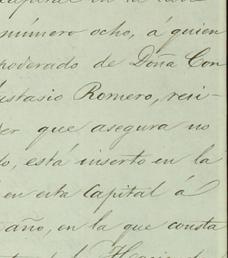 número ocho, á quien
poderado de Doña Con
ustasio Romero, resi-
er que asegura no
o, está inserto en la
en esta Capital á
año, en la que consta